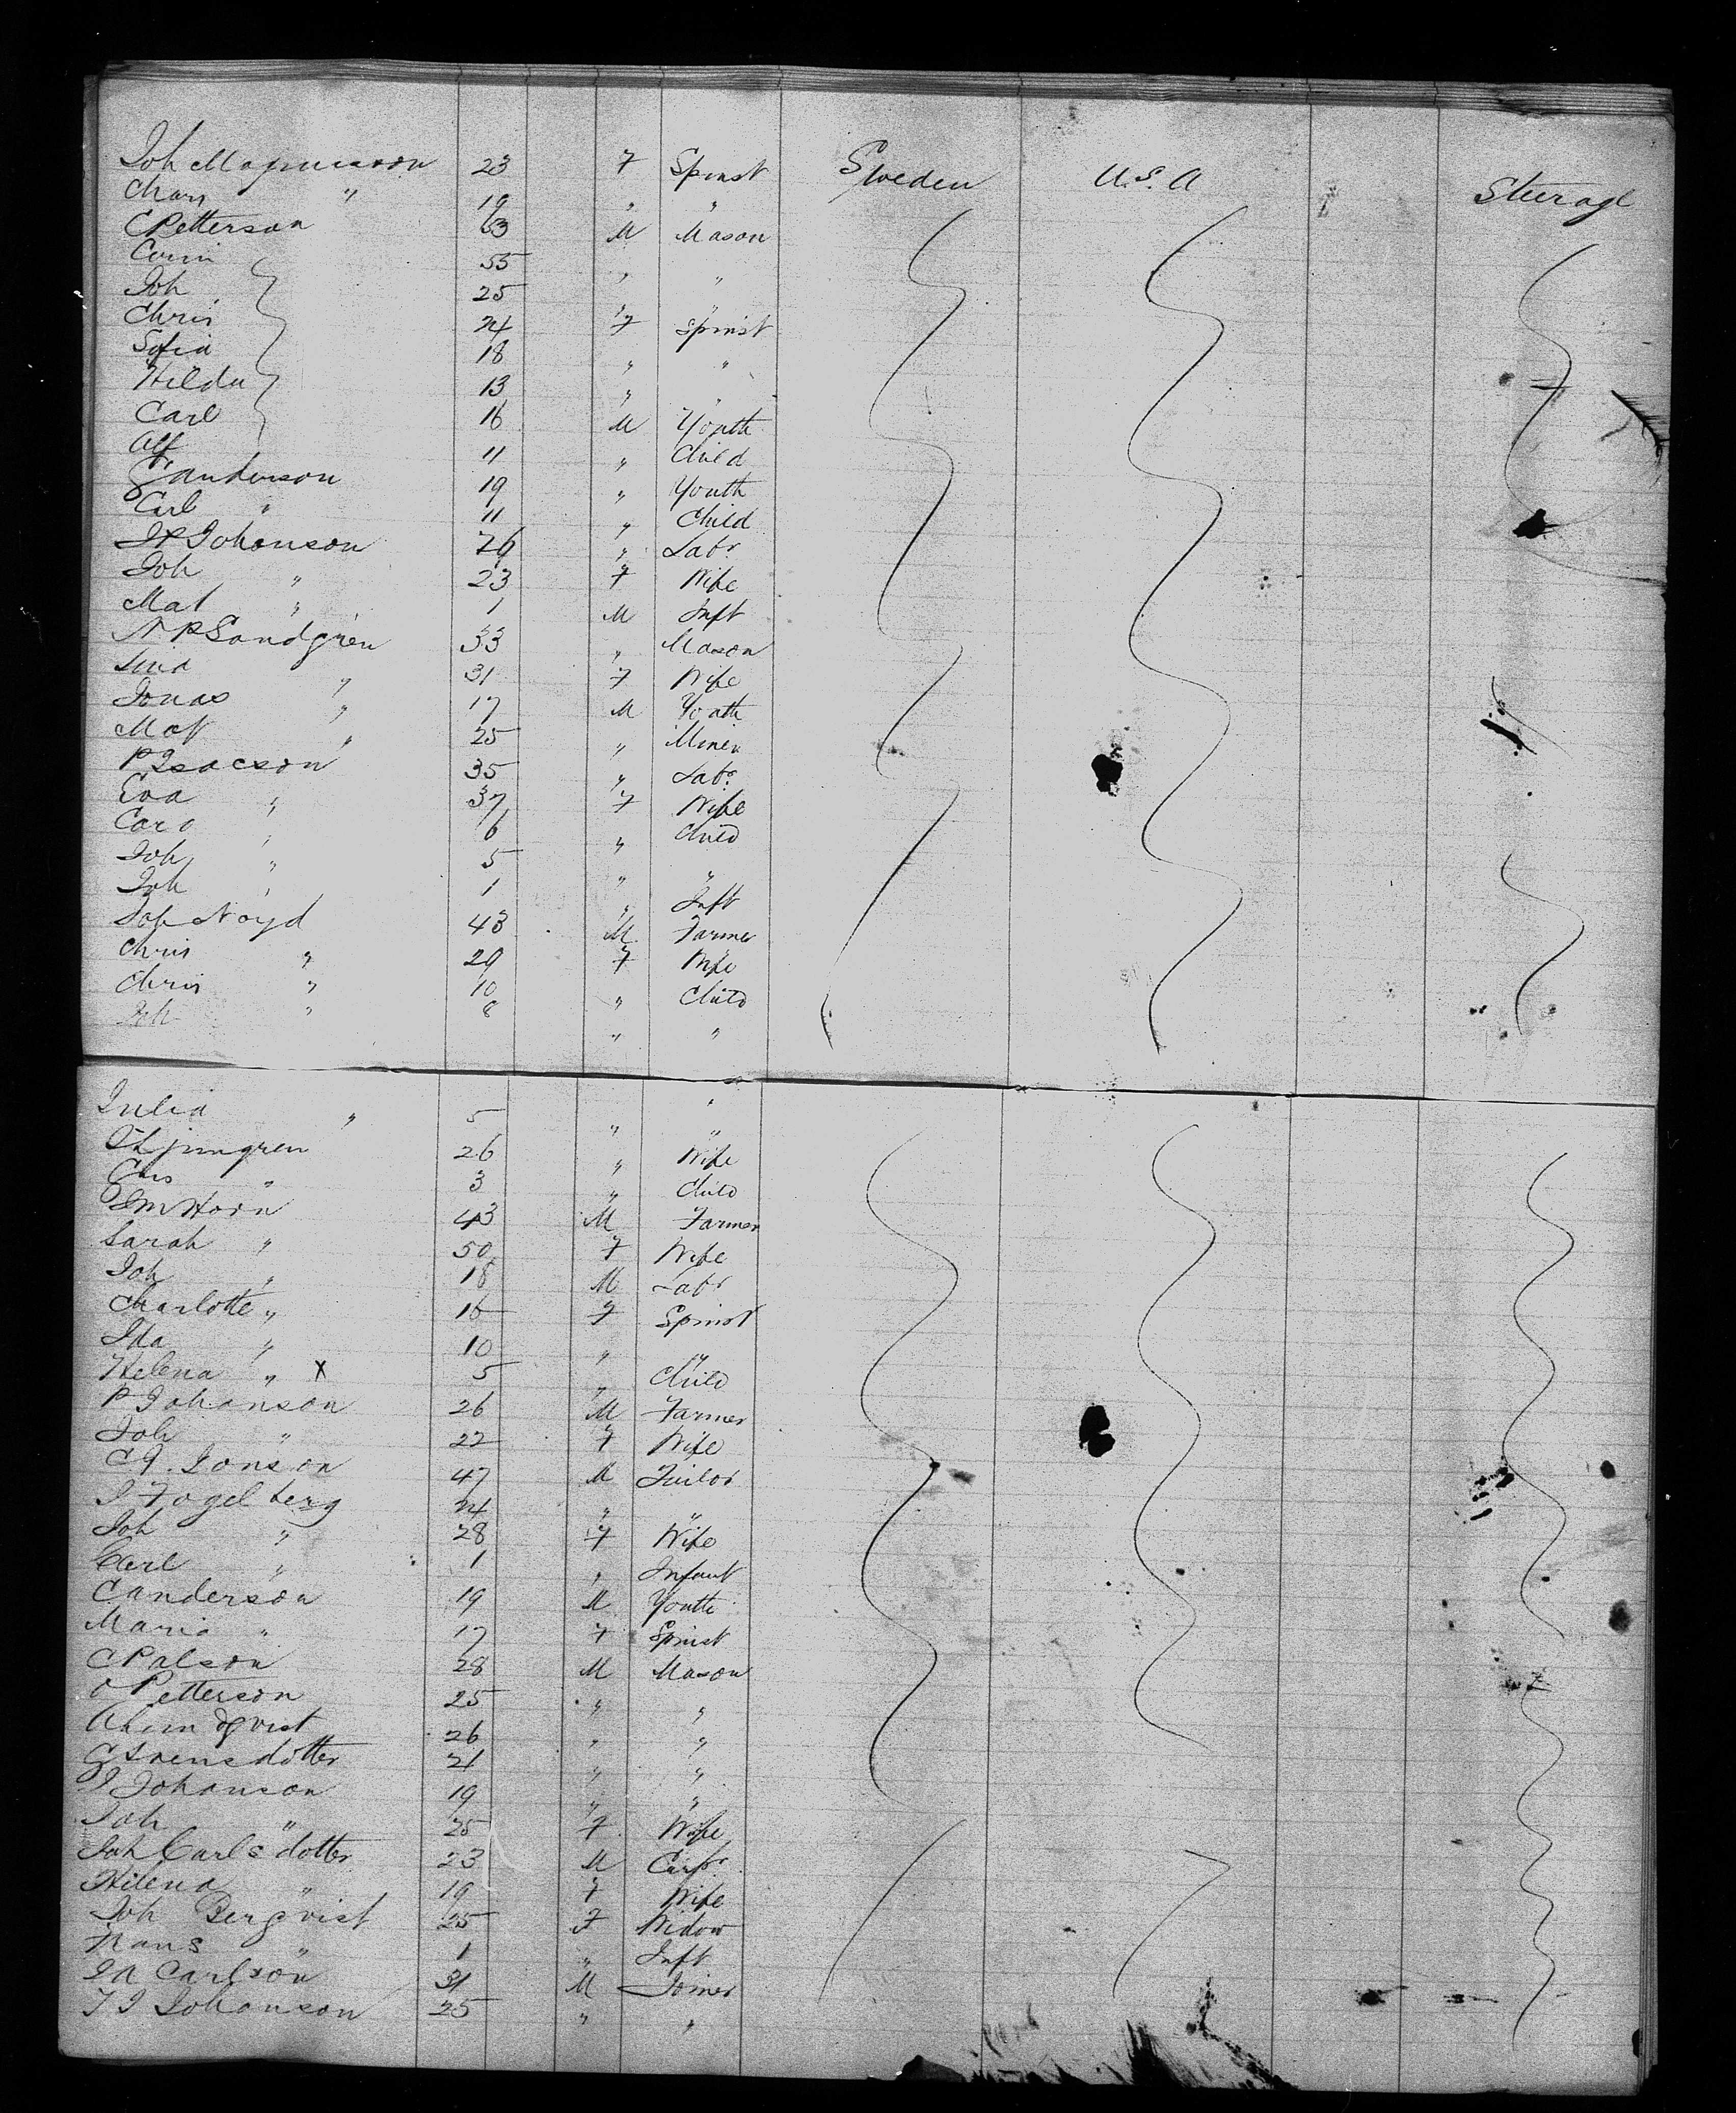 Joh Magnusson 23 F Spinst Sweden U.S.A Steerage
Chars " 19 " "
C Petterson 63 M Mason
55 " "
Joh 25 " "
Chris 24 F Spinst
Sofia 18 " "
Hilda 13 " "
Carl 16 M Youth
Alf 11 " Child
G Anderson 19 " Youth
Carl " 11 " Child
J P Johanson 26 " Labr
Joh " 23 F Wife
Mat " 1 M Inft
N P Sandgren 33 " Mason
Lina " 31 F Wife
Jonas " 17 M Youth
Mat " 25 " Miner
P Isacson 35 " Labr
Eva " 37 F Wife
Caro " 6 " Child
Joh " 5 " "
Joh " 1 " Inft
Joh Noyd 43 M Farmer
Chris " 29 F Wife
Chris " 10 " Child
Joh " 8 " "
Julia " 5 " "
Ljungren 26 " Wife
Chs " 3 " Child
J M Horn 43 M Farmer
Sarah " 50 F Wife
Joh " 18 M Labr
Charlotte " 16 F Spinst
Ida " 10 " "
Helena " X 5 " Child
P Johanson 26 M Farmer
Joh " 22 F Wife
C G. Jonson 47 M Tailor
J Fogelberg 24 " "
Joh " 28 F Wife
Carl " 1 " Infant
C Anderson 19 M Youth
Maria " 17 F Spinst
C Palson 28 M Mason
O Petterson 25 " "
A Lindqvist 26 " "
G Svensdotter 21 " "
J Johanson 19 " "
Joh " 25 F Wife
Joh Carlsdotter 23 M Carpr
Hilena " 19 F Wife
Joh Bergvist 25 F Widow
Frans " 1 " Inft
J A Carlson 31 M Joiner
F J Johanson 25 " "